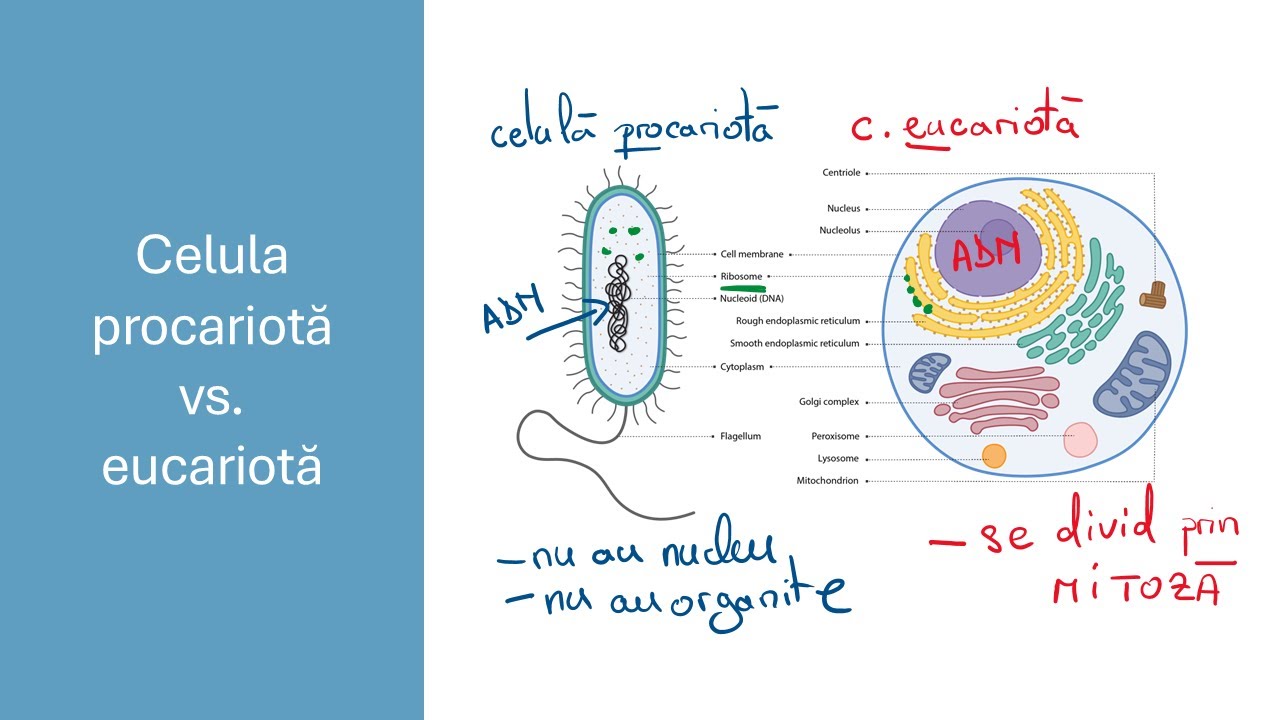 Celula
procariotă
vs.
eucariotă
celulă procariotă
c. eucariotă
Centriole
Nucleus
Nucleolus
Cell membrane
Ribosome
Nucleoid (DNA)
Rough endoplasmic reticulum
Smooth endoplasmic reticulum
Cytoplasm
Golgi complex
Flagellum
Peroxisome
Lysosome
Mitochondrion
ADN
ADN
- nu au nucleu
- nu au organite
- se divid prin
MiTOZĂ